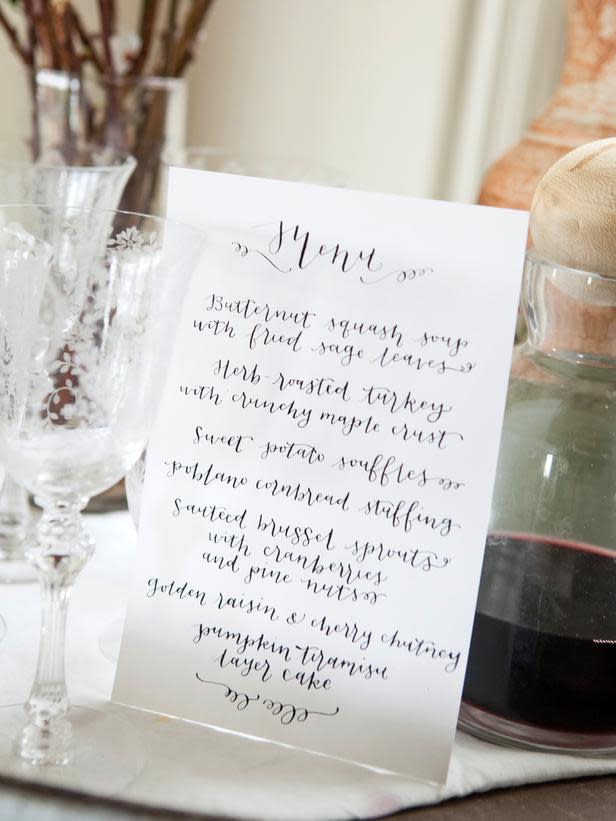 Menu
Butternut squash soup
with fried sage leaves
Herb-roasted turkey
with crunchy maple crust
Sweet potato souffles
poblano cornbread stuffing
Sautéed brussel sprouts
with cranberries
and pine nuts
golden raisin & cherry chutney
pumpkin tiramisu
layer cake